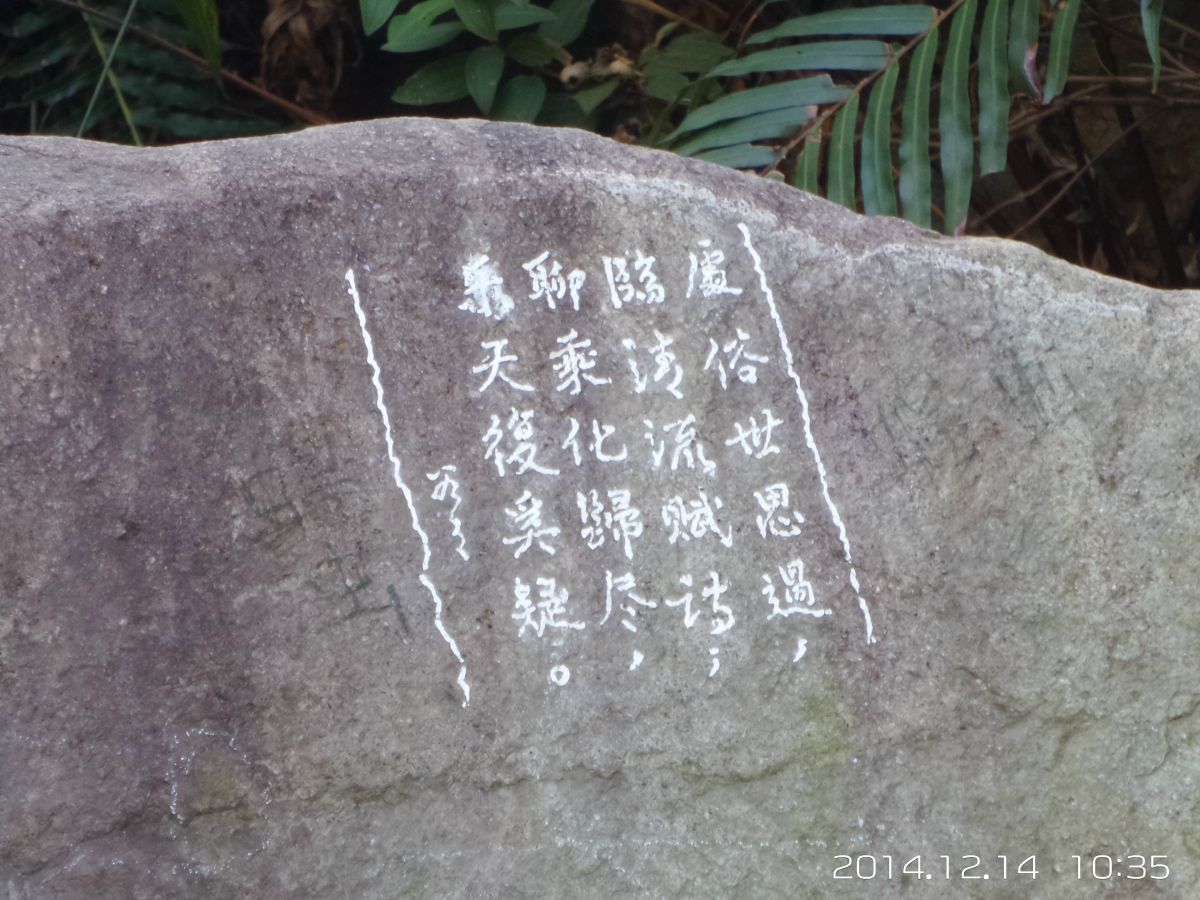 處俗世思過，
臨清流賦詩；
聊乘化歸尽，
樂天復奚疑。
2014.12.14 10:35